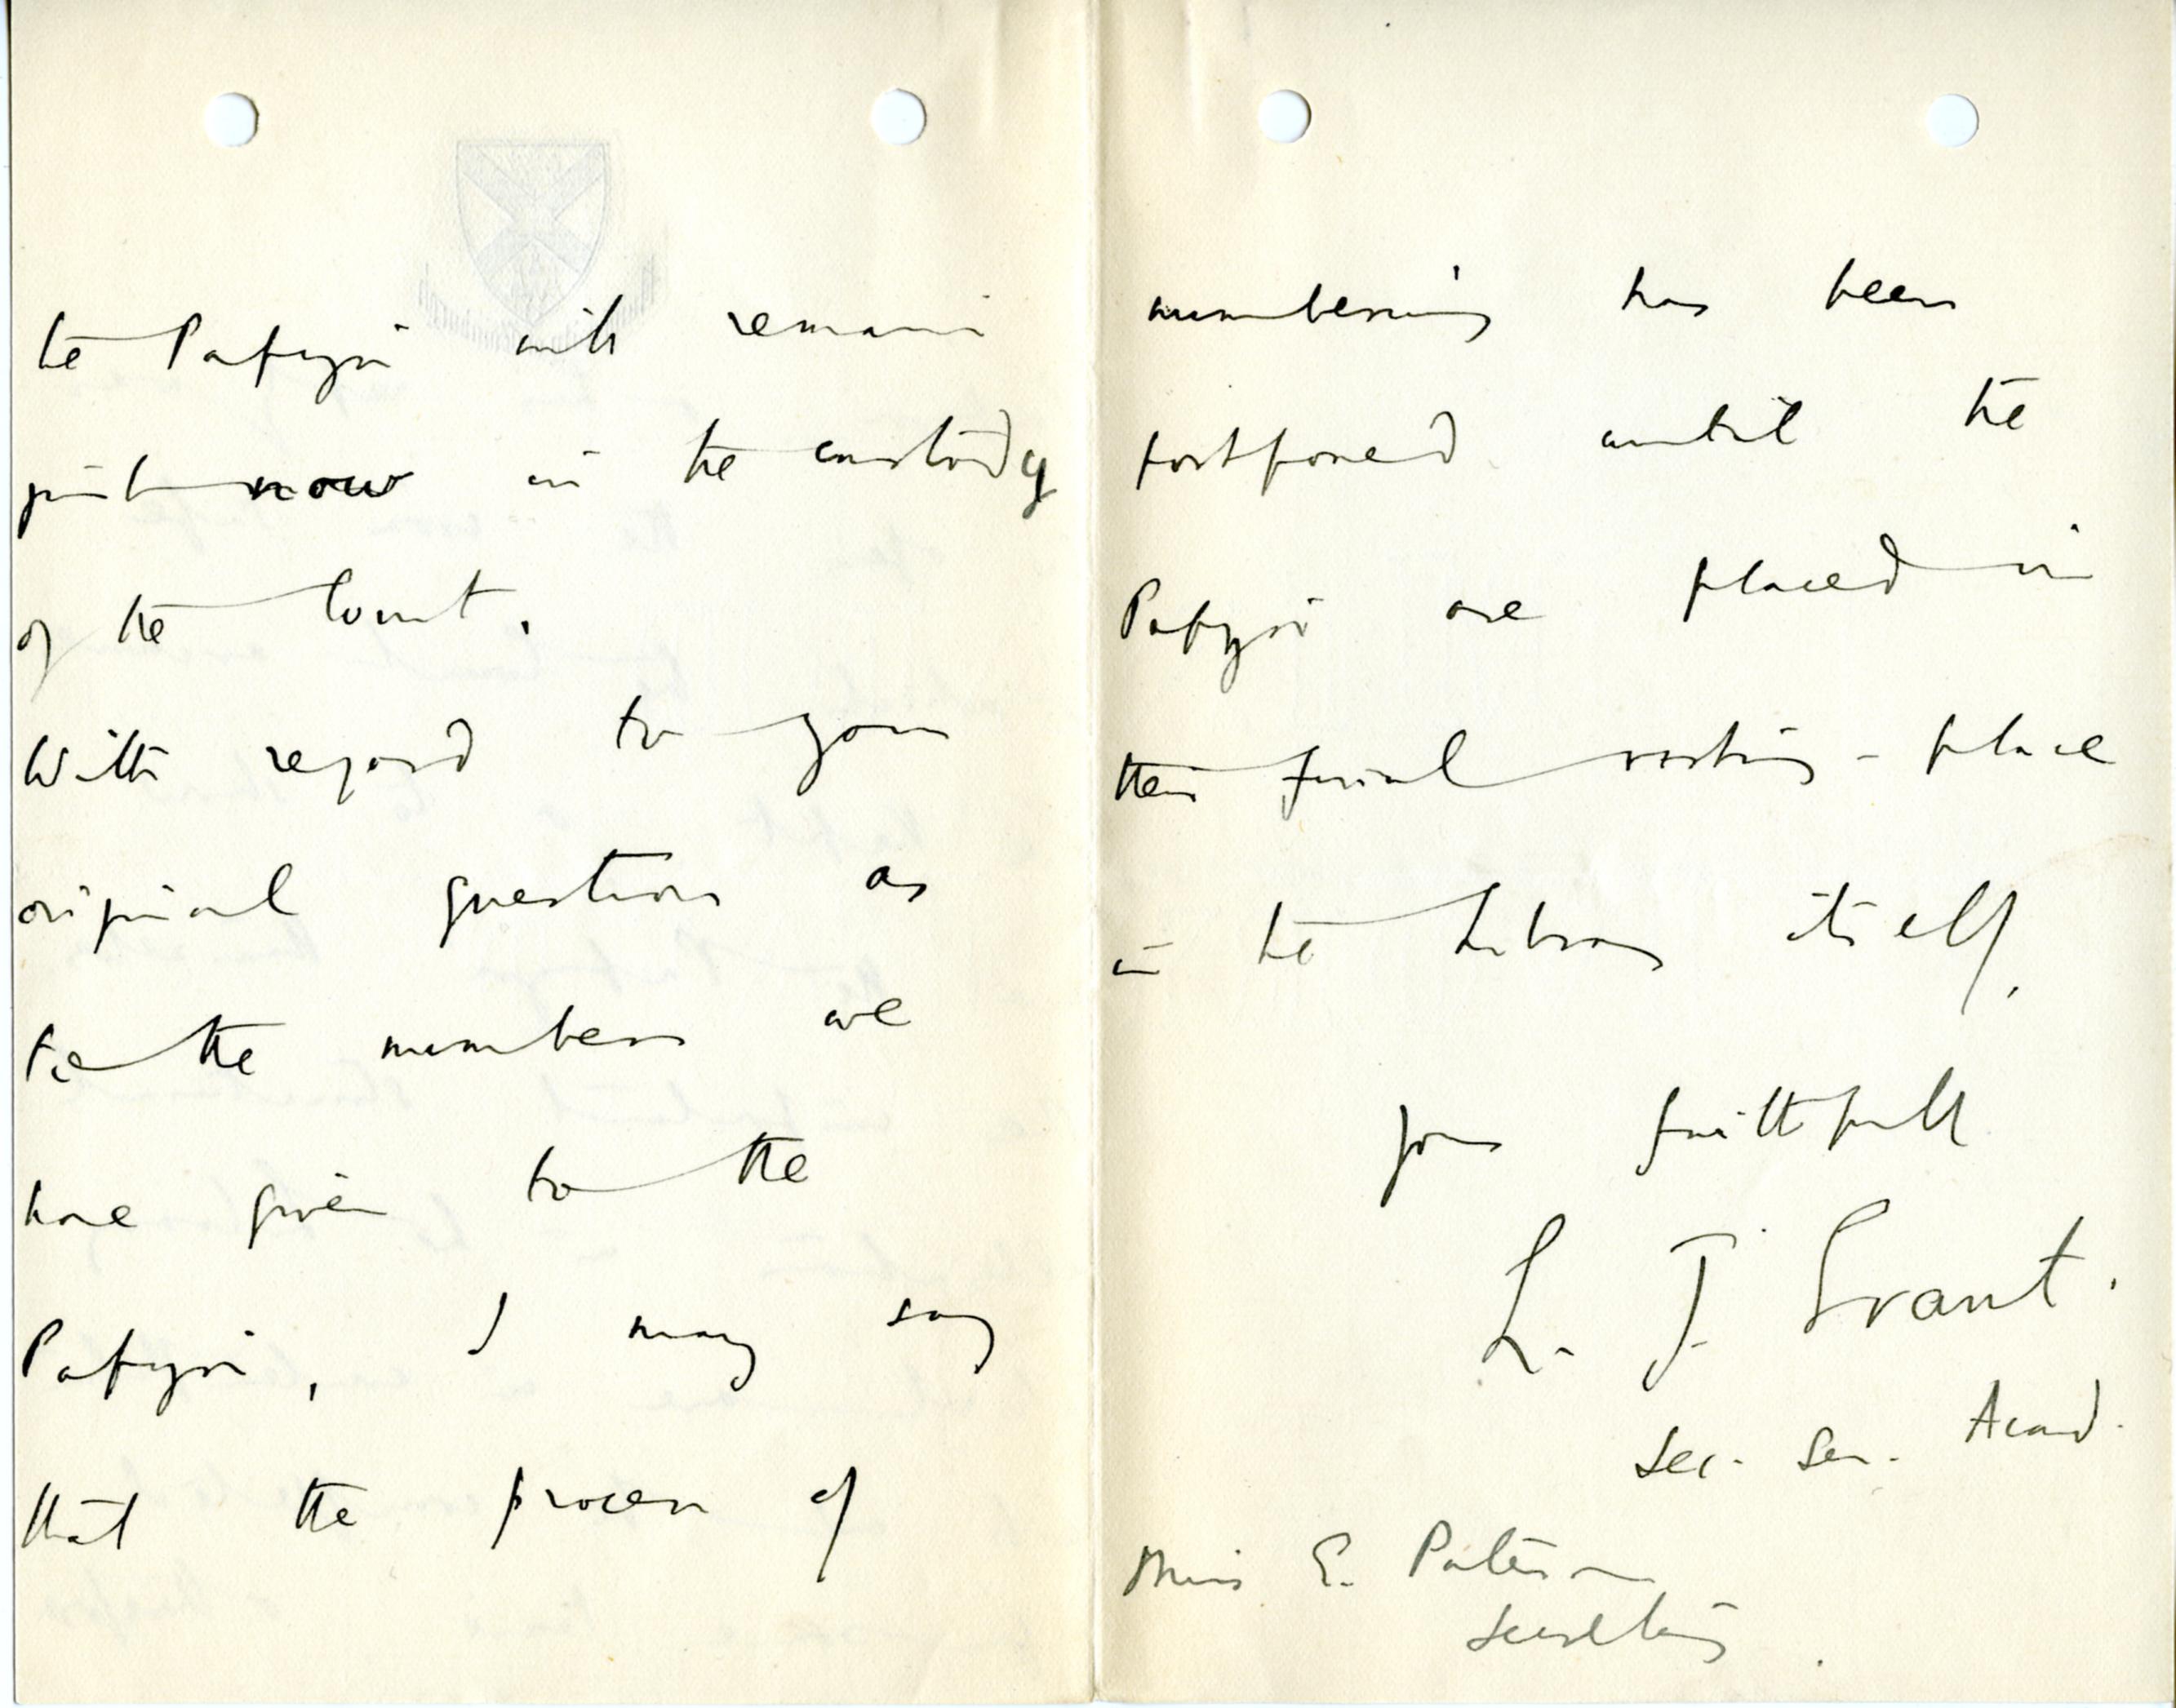 the Papyri will remain
just now in the custody
of the Court.
With regard to your
original question as
to the numbers we
have given to the
Papyri, I may say
that the process of
numbering has been
postponed until the
Papyri are placed in
their final resting-place
in the Library itself.
Yours faithfully
L. J. Grant.
Sec. Sen. Acad.
Miss E. Paterson
Secretary.